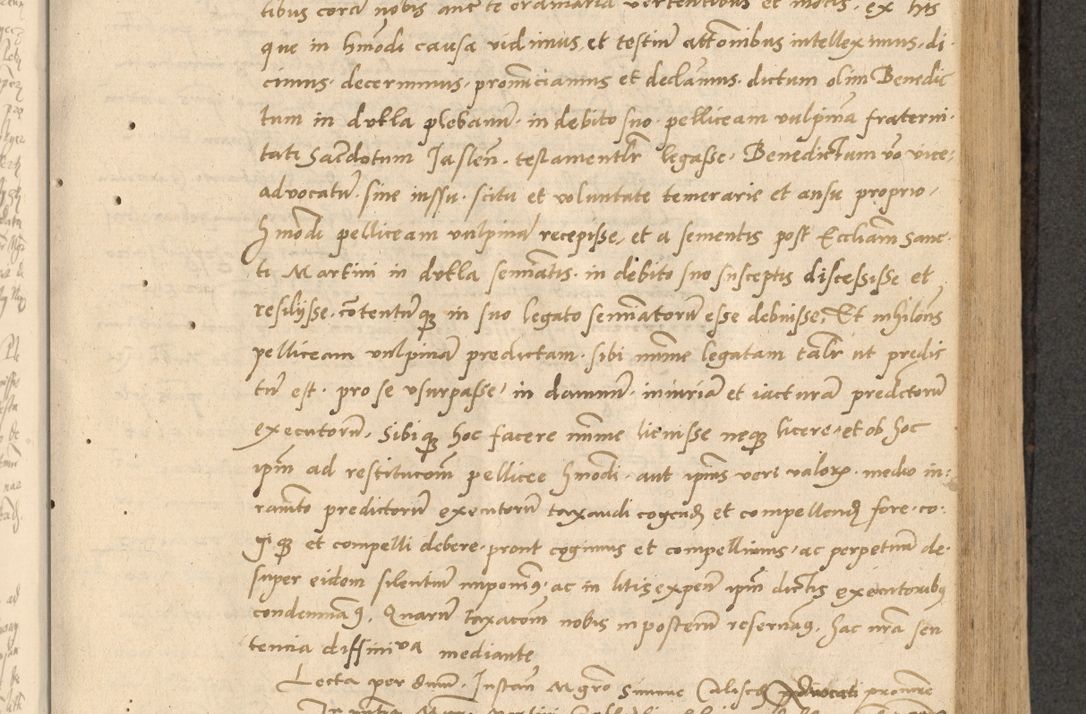 tibus coram nobis ante ordinaria vertentibus et motis, ex his
que in hmõdi causa vidimus et testium attõnibus intelleximus, di
cimus, decernimus, pronũciamus et declaramus, dictum olim Benedic
tum in dukla plebanũ, in debito suo pelliceam vulpinã fraterni
tati Sacdotum Jaslen̄. testamentlr legasse, Benedictum vo vice
advocatũ, sine iussu, scitu et voluntate temerarie et ausu proprio,
hmõdi pelliceam vulpinã recepisse, et a sementis post Eccliam Sanc
ti Martini in dukla seminatis, in debito suo susceptis discessisse et
resilysse, cõtentũqz in suo legato seminatorũ esse debuisse, Et nihilomĩs
pelliceam vulpinã predictam, sibi mĩme legatam talr ut predic
tũ est, pro se usurpasse, in damnũ, iniuriã et iacturã predictorũ
executorũ, Sibiqz hoc facere mĩme licuisse neqz licere, et ob hoc
ipm̄ ad restitucõm pellicee hmõdi, aut ipĩus veri valorẽ, medio iu:
ramto predictorũ executorũ taxandi cogend et compellend fore, co:
giqz et compelli debere, prout cogimus et compellimus, ac perpetuũ de:
super eidem silentiũ imponimꝰ, ac in litis expen̄ ipm̄ dictis executoribꝰ
condemnamꝰ, Quarũ taxacõm nobis in posterũ reservamꝰ, hac nrã sen
tencia diffinitiva mediante
Lecta per dnũ, Instan̄ Mgrõ